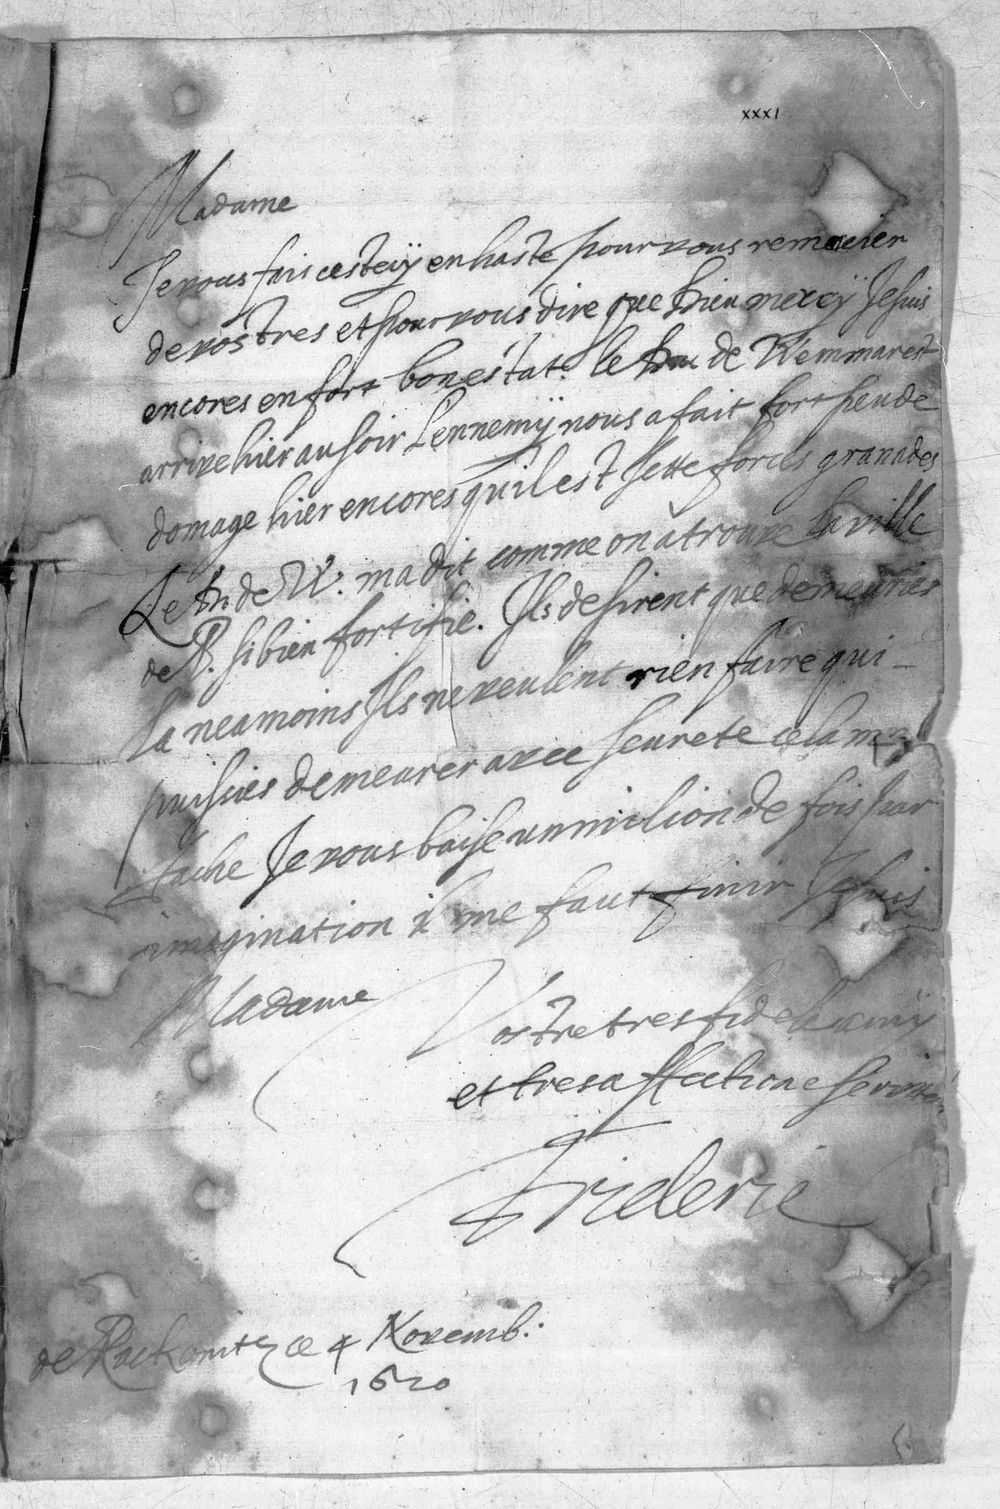 XXXI
Madame
Je vous fais cestecÿ en haste pour vous remercier
de vostres et pour vous dire que Dieu mercÿ Je suis
encores en fort bon estat. le Duc de Wemmar est
arrive hier au soir Lennemÿ nous a fait fort peu de
domage hier encores quil est Jette forces granades
Le de W. ma dit comme on à trouve la ville
de P. si bien fortifie. Ils desirent que demeuries
la neamoins Ils ne veulent rien faire qui
puissies demeurer avec seurete cela me
fache Je vous baise un milion de fois par
imagination il me faut finir Je suis
Madame
Vostre tres fidel amÿ
et tres affectione servite.
Frideric
de Rackonitz ce 4 Novemb:
1620